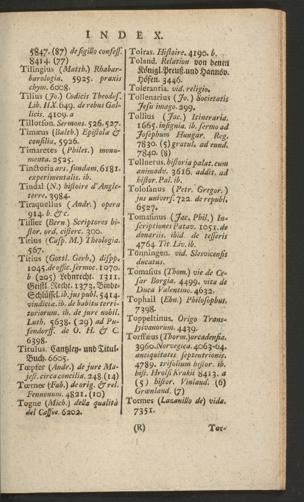 INDEX.
5847. (87) de sigillo confess.
8414. (77)
Tilingius (Matth.) Rhabar-
barologia. 5925. praxis
chym. 6008.
Tilius (Jo.) Codicis Theodos.
Lib. IIX. 649. de rebus Gal-
licis. 4109. a
Tillotson. Sermons. 526. 527.
Timæus (Balth.) Epistolæ &
consilia, 5926.
Timaretes (Philet.) monu-
menta. 2525.
Tinctoria ars. fundam. 6181.
experimentalis. ib.
Tindal (N.) histoire d'Angle-
terre. 3984.
Tiraquellus (Andr.) opera
914. b. & c.
Tissier (Bern.) Scriptores bi-
stor. ord. cisterc. 300.
Titius (Casp. M.) Theologia.
567.
Titius (Gottl. Gerh.) dispp.
1045. de offic. sermoc. 1070.
b (205) Lehnrecht. 1311.
Geistl. Recht. 1373. Binde-
Schlüssel. ib. jus publ. 5414.
vindicia. ib. de habitu terri-
toriorum. ib. de jure nobil.
Luth. 5638. (29) ad Pu-
fendorff. de O. H. & C.
6398.
Titulus. Cantzley- und Titul-
Buch. 6605.
Tœpfer (Andr.) de jure Ma-
jest. circa concilia. 248. (14)
Tœrner (Fab.) de orig. & rel.
Fennonum. 4821. (10)
Togne (Mich.) della qualità
del Caffee. 6202.
Toiras. Histoire. 4190. b.
Toland. Relation von denen
Königl. Preuß. und Hannöv.
Höfen. 3446.
Tolerantia. vid. religio.
Tollenarius (Jo.) Societatis
Jesu imago. 299.
Tollius (Jac.) Itineraria.
1665. insignia. ib. sermo ad
Josephum Hungar. Reg.
7830. (5) gratul. ad eund.
7840. (8)
Tollnerus. historia palat. cum
animadv. 3616. addit. ad
histor. Pal. ib.
Tolosanus (Petr. Gregor.)
jus univers. 722. de republ.
6527.
Tomasinus (Jac. Phil.) In-
scriptiones Patav. 1051. de
donariis. ibid. de tesseris
4764 Tit. Liv. ib.
Tönningen. vid. Slesvicensis
ducatus.
Tomasus (Thom.) vie de Ce-
sar Borgia. 4499. vita de
Duca Valentino. 4632.
Tophail (Ebn.) Philosophus.
7398.
Toppeltinus. Origo Trans-
sylvanorum. 4439.
Torffæus (Thorm.) orcadensia.
3960. Norvegica. 4063-64.
antiquitates septentrionis.
4789. trifolium histor. ib.
hist. Hrolfi Krakii 8413. a
(5) histor. Vinland. (6)
Grœnland. (7)
Tormes (Lazarillo de) vida.
7351.
(R) Tor-